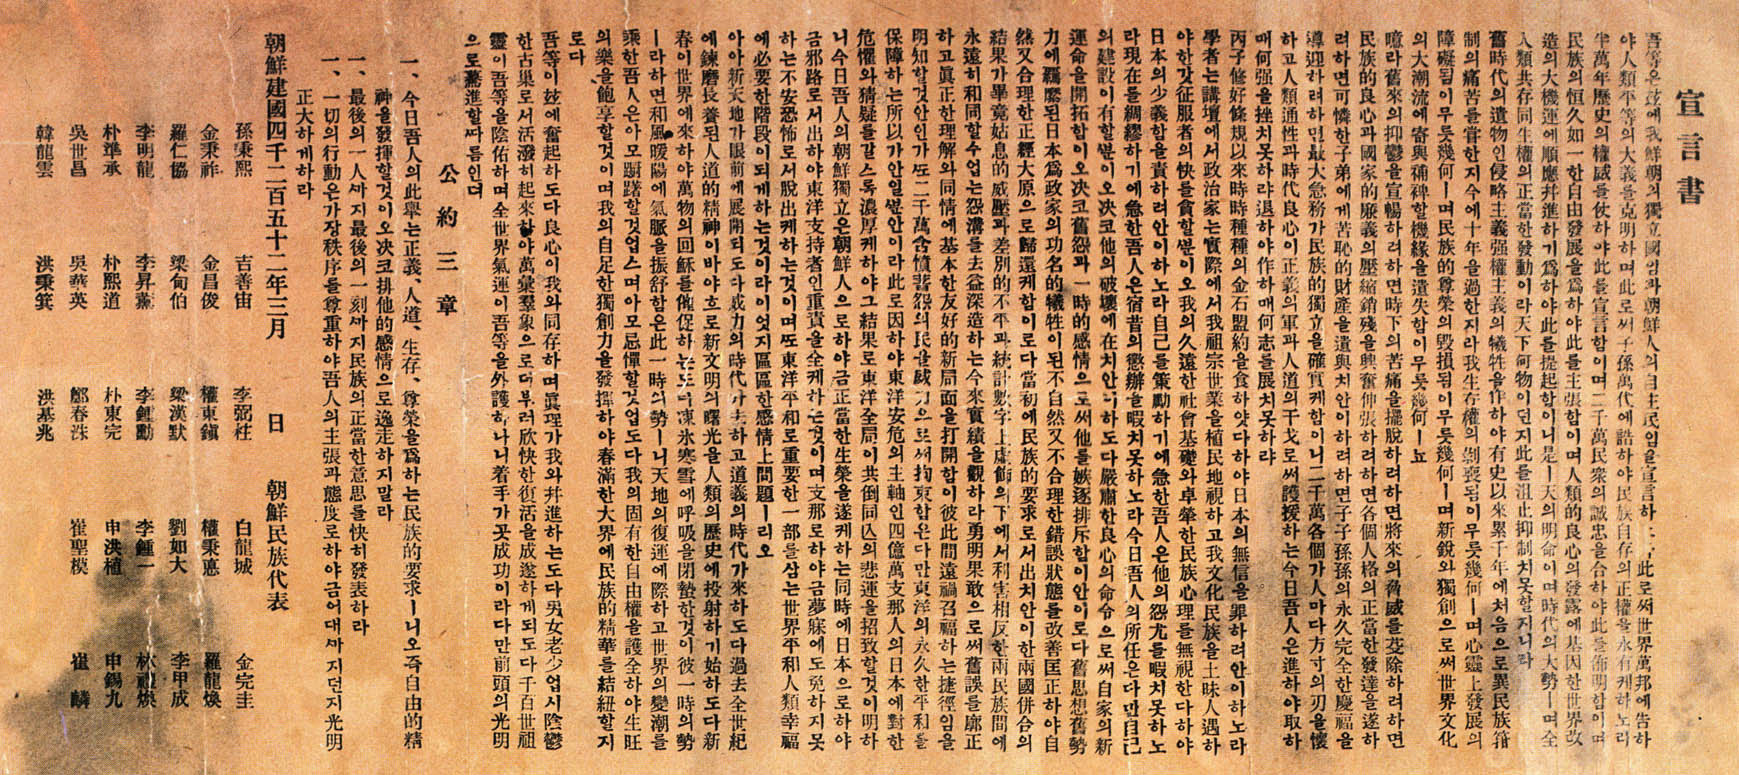 宣言書
吾等은玆에我鮮朝의獨立國임과朝鮮人의自主民임을宣言하노라此로써世界萬邦에告하
야人類平等의大義를克明하며此로써子孫萬代에誥하야民族自存의正權을永有케하노라
半萬年歷史의權威를仗하야此를宣言함이며二千萬民衆의誠忠을合하야此를佈明함이며
民族의恒久如一한自由發展을爲하야此를主張함이며人類的良心의發露에基因한世界改
造의大機運에順應幷進하기爲하야此를提起함이니是ㅣ天의明命이며時代의大勢ㅣ며全
人類共存同生權의正當한發動이라天下何物이던지此를沮止抑制치못할지니라
舊時代의遺物인侵略主義强權主義의犧牲을作하야有史以來累千年에처음으로異民族箝
制의痛苦를嘗한지今에十年을過한지라我生存權의剝喪됨이무릇幾何ㅣ며心靈上發展의
障礙됨이무릇幾何ㅣ며民族的尊榮의毁損됨이무릇幾何ㅣ며新銳와獨創으로써世界文化
의大潮流에寄與補裨할機緣을遺失함이무릇幾何ㅣ뇨
噫라舊來의抑鬱을宣暢하려하면時下의苦痛을擺脫하려하면將來의脅威를芟除하려하면
民族的良心과國家的廉義의壓縮銷殘을興奮伸張하려하면各個人格의正當한發達을遂하
려하면可憐한子弟에게苦恥的財産을遺與치안이하려하면子子孫孫의永久完全한慶福을
導迎하려하면最大急務가民族的獨立을確實케함이니二千萬各個가人마다方寸의刃을懷
하고人類通性과時代良心이正義의軍과人道의干戈로써護援하는今日吾人은進하야取하
매何强을挫치못하랴退하야作하매何志를展치못하랴
丙子修好條規以來時時種種의金石盟約을食하얏다하야日本의無信을罪하려안이하노라
學者는講壇에서政治家는實際에서我祖宗世業을植民地視하고我文化民族을土昧人遇하
야한갓征服者의快를貪할뿐이오我의久遠한社會基礎와卓犖한民族心理를無視한다하야
日本의少義함을責하려안이하노라自己를策勵하기에急한吾人은他의怨尤를暇치못하노
라現在를綢繆하기에急한吾人은宿昔의懲辦을暇치못하노라今日吾人의所任은다만自己
의建設이有할뿐이오決코他의破壞에在치안이하도다嚴肅한良心의命令으로써自家의新
運命을開拓함이오決코舊怨과一時的感情으로써他를嫉逐排斥함이안이로다舊思想舊勢
力에羈縻된日本爲政家의功名的犧牲이된不自然又不合理한錯誤狀態를改善匡正하야自
然又合理한正經大原으로歸還케함이로다當初에民族的要求로서出치안이한兩國倂合의
結果가畢竟姑息的威壓과差別的不平과統計數字上虛飾의下에서利害相反한兩民族間에
永遠히和同할수업는怨溝를去益深造하는今來實績을觀하라勇明果敢으로써舊誤를廓正
하고眞正한理解와同情에基本한友好的新局面을打開함이彼此間遠禍召福하는捷徑임을
明知할것안인가또二千萬含憤蓄怨의民을威力으로써拘束함은다만東洋의永久한平和를
保障하는所以가안일뿐안이라此로因하야東洋安危의主軸인四億萬支那人의日本에對한
危懼와猜疑를갈스록濃厚케하야그結果로東洋全局이共倒同亡의悲運을招致할것이明하
니今日吾人의朝鮮獨立은朝鮮人으로하야금正當한生榮을遂케하는同時에日本으로하야
금邪路로서出하야東洋支持者인重責을全케하는것이며支那로하야금夢寐에도免하지못
하는不安恐怖로서脫出케하는것이며또東洋平和로重要한一部를삼는世界平和人類幸福
에必要한階段이되게하는것이라이엇지區區한感情上問題ㅣ리오
아아新天地가眼前에展開되도다威力의時代가去하고道義의時代가來하도다過去全世紀
에鍊磨長養된人道的精神이바야흐로新文明의曙光을人類의歷史에投射하기始하도다新
春이世界에來하야萬物의回穌를催促하는도다凍氷寒雪에呼吸을閉蟄한것이彼一時의勢
ㅣ라하면和風暖陽에氣脈을振舒함은此一時의勢ㅣ니天地의復運에際하고世界의變潮를
乘한吾人은아모躕躇할것업스며아모忌憚할것업도다我의固有한自由權을護全하야生旺
의樂을飽享할것이며我의自足한獨創力을發揮하야春滿한大界에民族的精華를結紐할지
로다
吾等이玆에奮起하도다良心이我와同存하며眞理가我와幷進하는도다男女老少업시陰鬱
한古巢로서活潑히起來하야萬彙羣象으로더부러欣快한復活을成遂하게되도다千百世祖
靈이吾等을陰佑하며全世界氣運이吾等을外護하나니着手가곳成功이라다만前頭의光明
으로驀進할따름인뎌
公約三章
一、今日吾人의此擧는正義、人道、生存、尊榮을爲하는民族的要求ㅣ니오즉自由的精
神을發揮할것이오決코排他的感情으로逸走하지말라
一、最後의一人까지最後의一刻까지民族의正當한意思를快히發表하라
一、一切의行動은가장秩序를尊重하야吾人의主張과態度로하야금어대까지던지光明
正大하게하라
朝鮮建國四千二百五十二年三月　日　朝鮮民族代表
孫秉熙　吉善宙　李弼柱　白龍城　金完圭
金秉祚　金昌俊　權東鎭　權秉悳　羅龍煥
羅仁協　梁甸伯　梁漢默　劉如大　李甲成
李明龍　李昇薰　李鍾勳　李鍾一　林禮煥
朴準承　朴熙道　朴東完　申洪植　申錫九
吳世昌　吳華英　鄭春洙　崔聖模　崔麟
韓龍雲　洪秉箕　洪基兆